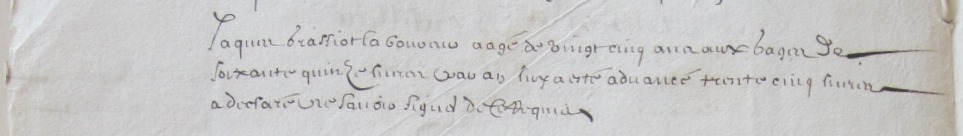 Jaques brassiot laboureur aagé de vingt cinq ans aux gages de
soixante quinze livres par an luy a esté advancé trente cinq livres
a declaré ne scavoir signer de ce requis